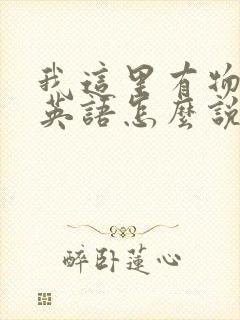 我這里有物
英語怎麼說
醉卧蓮心